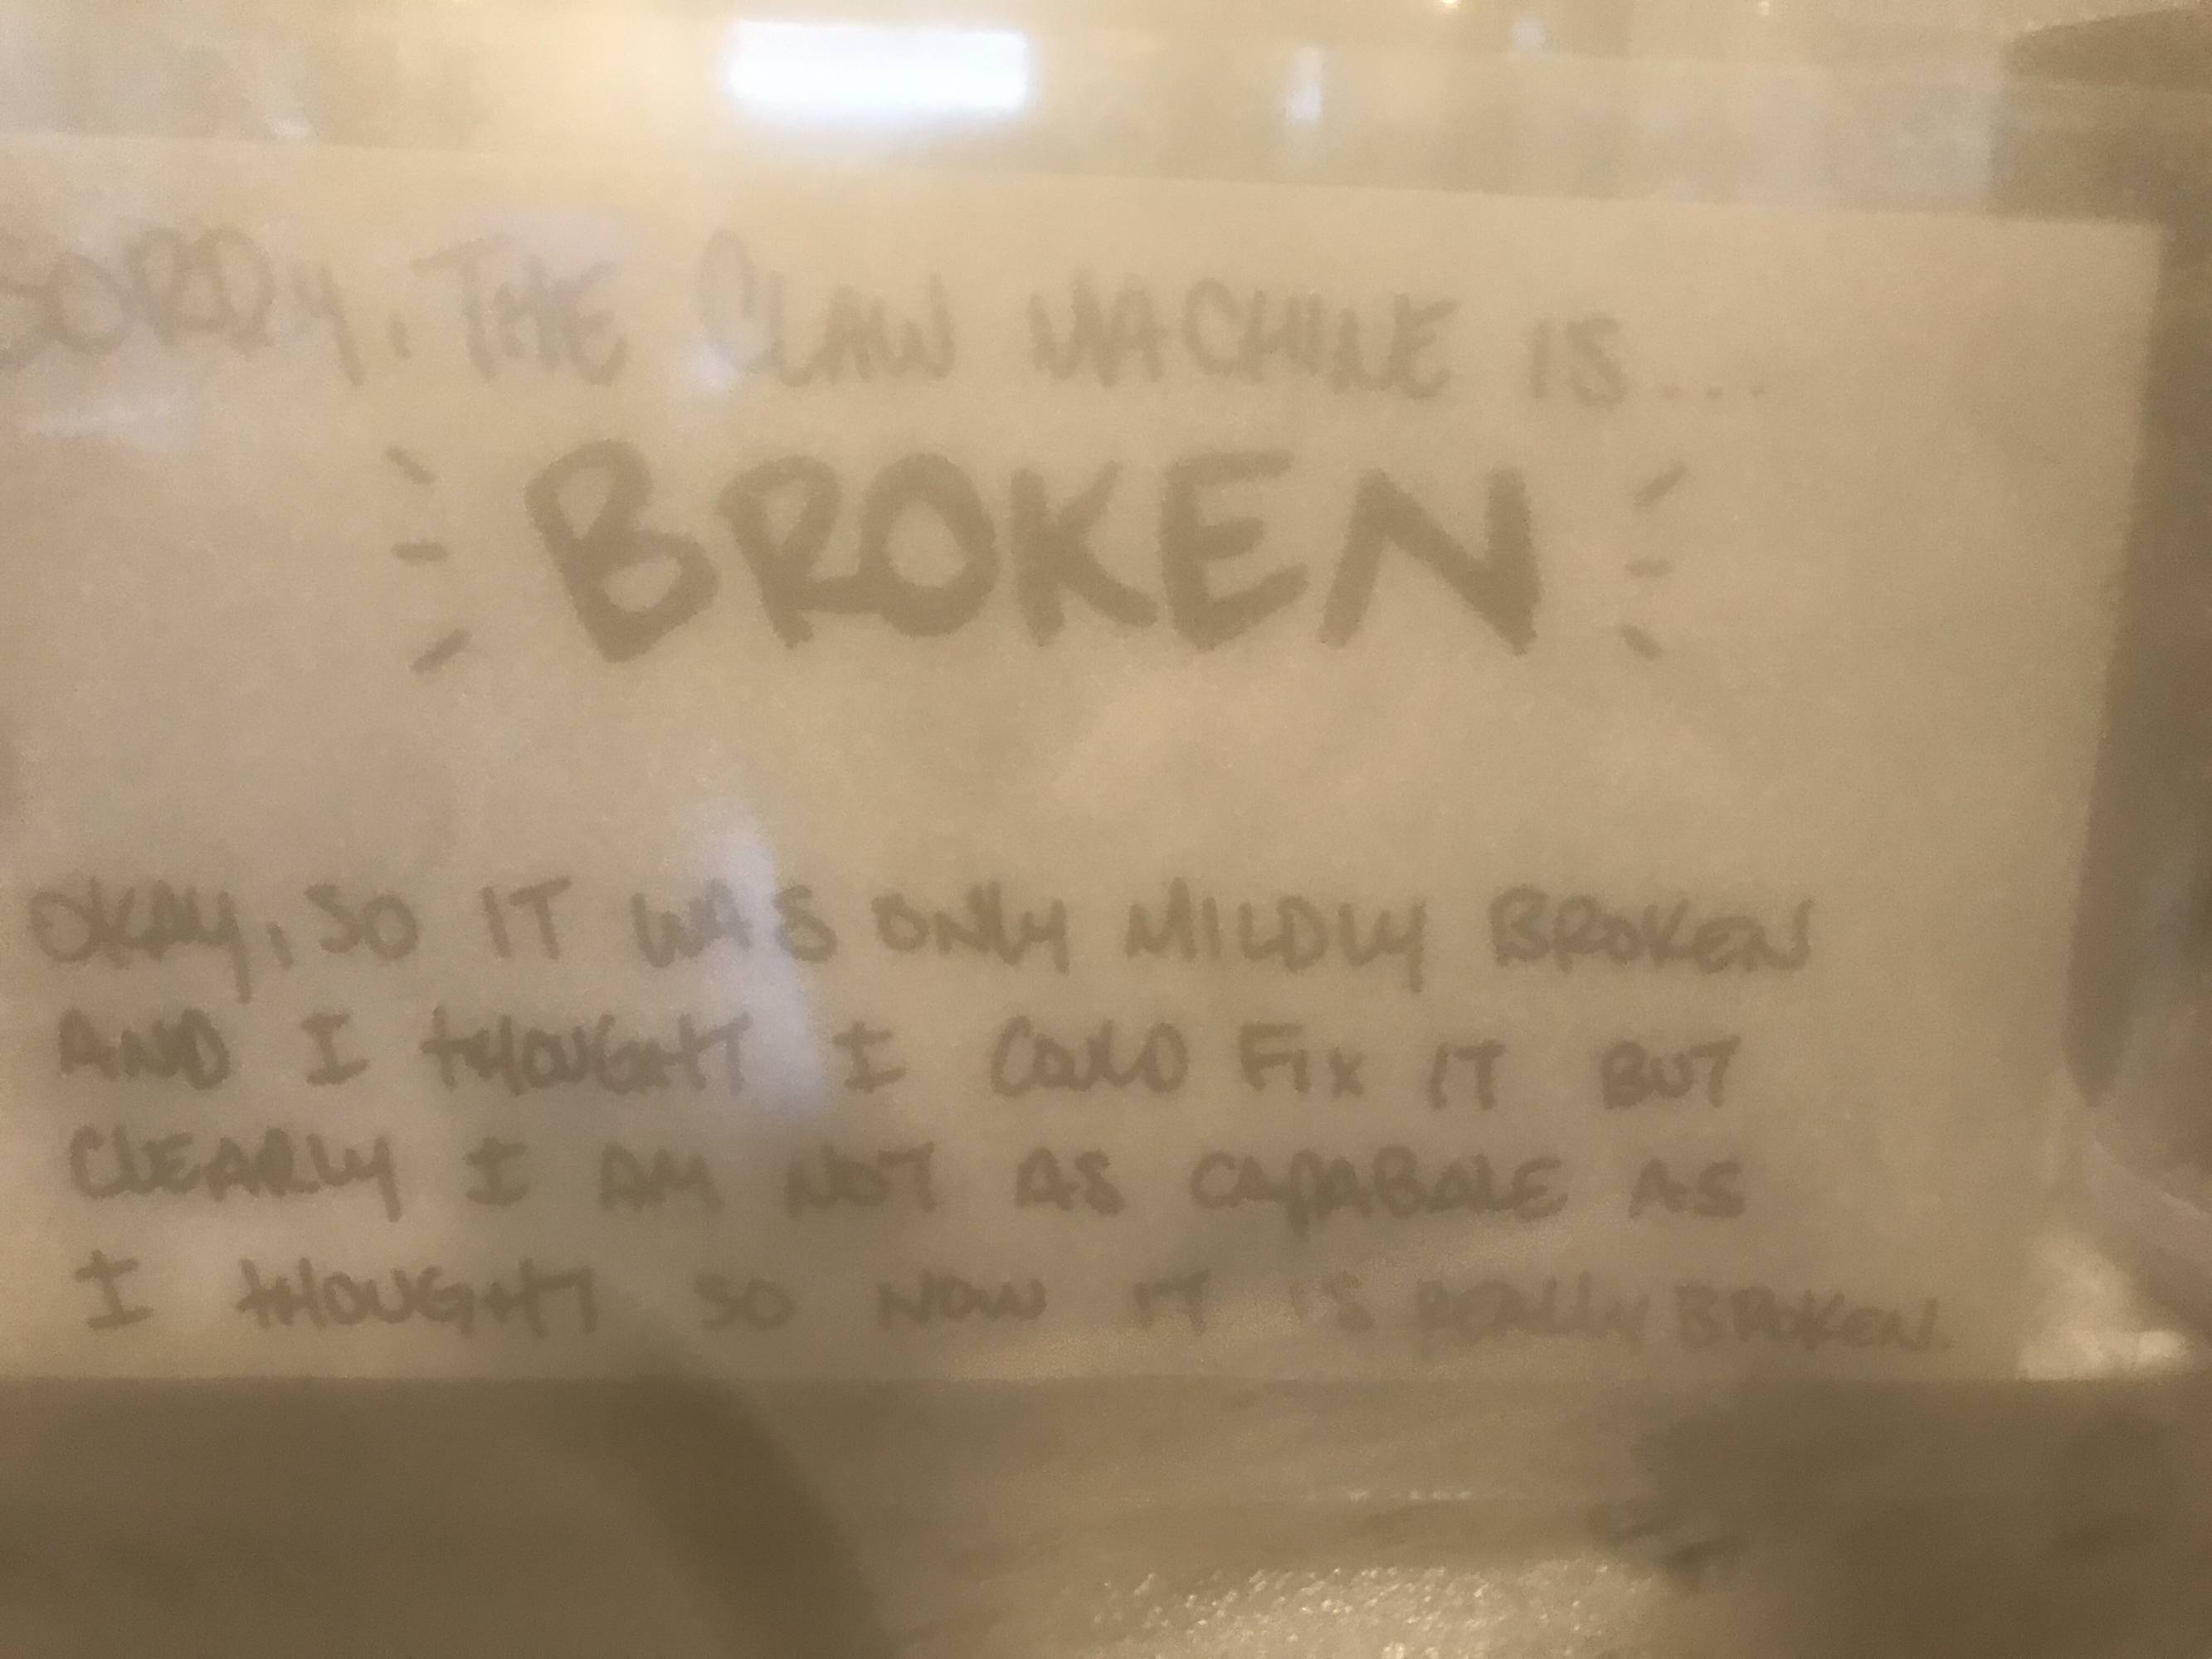 SORRY, THE CLAW MACHINE IS...
BROKEN
OKAY, SO IT WAS ONLY MILDLY BROKEN
AND I THOUGHT I COULD FIX IT BUT
CLEARLY I AM NOT AS CAPABALE AS
I THOUGHT SO NOW IT IS REALLY BROKEN.